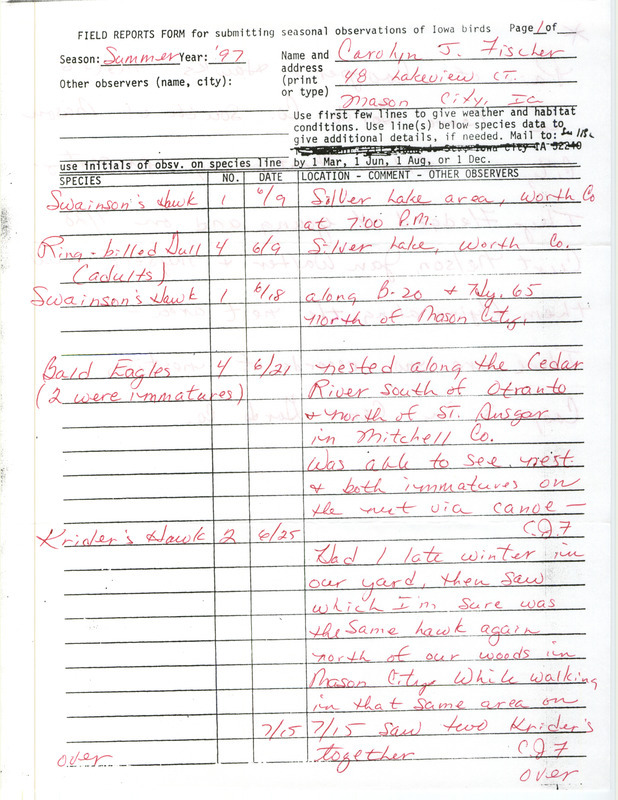 FIELD REPORTS FORM for submitting seasonal observations of Iowa birds Page 1 of
Season: Summer Year: '97 Name and Carolyn J. Fischer
address
(print 48 Lakeview CT.
or type) Mason City, Ia
Other observers (name, city):
Use first few lines to give weather and habitat
conditions. Use line(s) below species data to
give additional details, if needed. Mail to:
Iowa City IA 52240
use initials of obsv. on species line by 1 Mar, 1 Jun, 1 Aug, or 1 Dec.
SPECIES NO. DATE LOCATION - COMMENT - OTHER OBSERVERS
Swainson's Hawk 1 6/9 Silver Lake area, Worth Co
at 7:00 P.M.
Ring-billed Gull 4 6/9 Silver Lake, Worth Co.
(adults)
Swainson's Hawk 1 6/18 along B-20 & Hwy. 65
north of Mason City.
Bald Eagles 4 6/21 nested along the Cedar
(2 were immatures) River south of Otranto
& north of ST. Ansgar
in Mitchell Co.
Was able to see nest
& both immatures on
the nest via canoe —
CJF
Krider's Hawk 2 6/25
Had 1 late winter in
our yard, then saw
which I'm sure was
the same hawk again
north of our woods in
Mason City. While walking
in that same area on
7/15 7/15 saw two Krider's
together CJF
over over